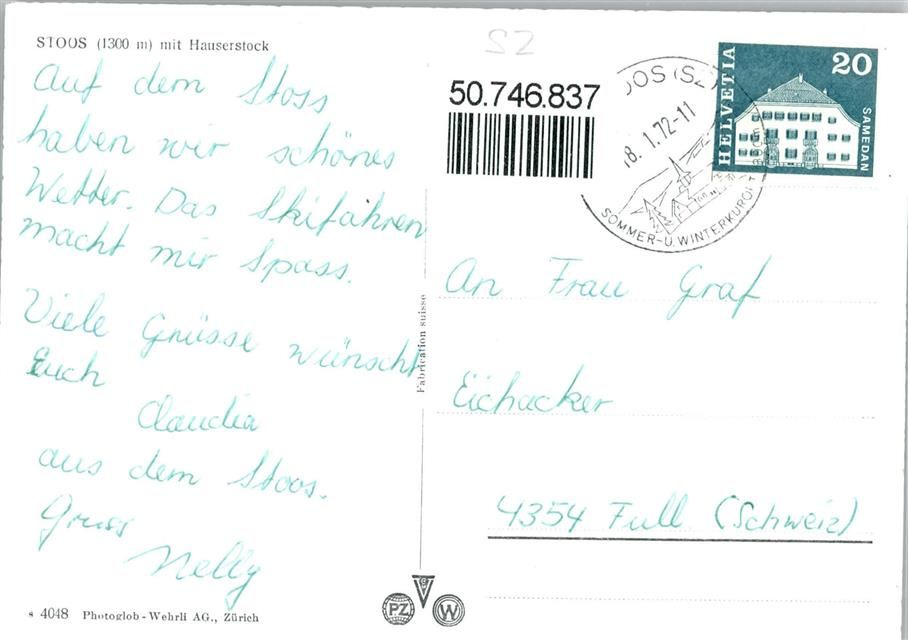 STOOS (1300 m) mit Hauserstock
SZ
Auf dem Stoss
haben wir schönes
Wetter. Das Skifahren
macht mir Spass.
Viele Grüsse wünscht
Euch
Claudia
aus dem Stoos.
Gruss
Nelly
s 4048 Photoglob-Wehrli AG., Zürich
Fabrication suisse
PZ
W
50.746.837
OOS (SZ)
8. 1. 72-11
SOMMER-U. WINTERKURORT
HELVETIA
20
SAMEDAN
An Frau Graf
Eichacker
4354 Full (Schweiz)